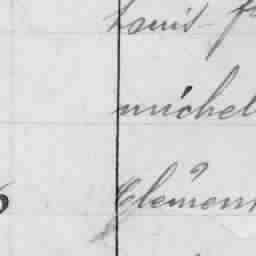 Louis
michel
Clémen